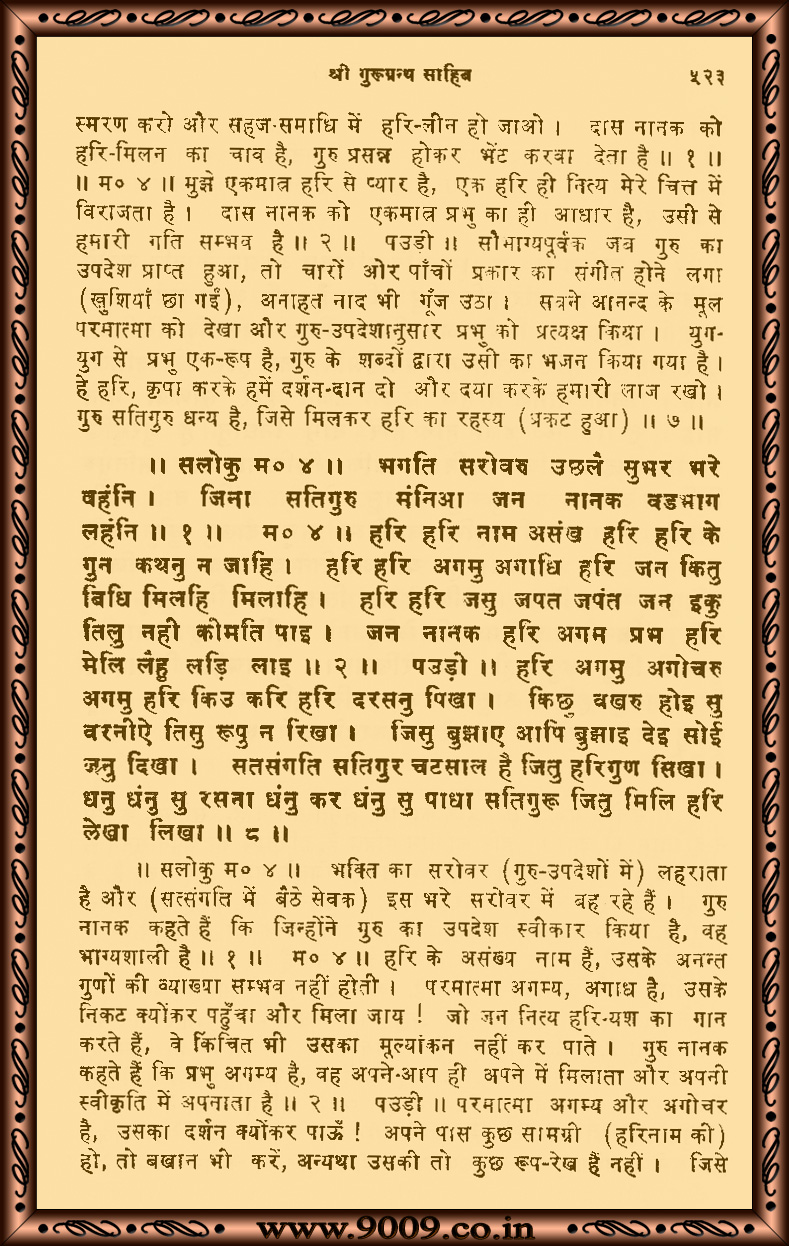 श्री गुरूग्रन्थ साहिब ५२३
स्मरण करो और सहज-समाधि में हरि-लीन हो जाओ । दास नानक को
हरि-मिलन का चाव है, गुरु प्रसन्न होकर भेंट करवा देता है ॥ १ ॥
॥ म० ४ ॥ मुझे एकमात्र हरि से प्यार है, एक हरि ही नित्य मेरे चित्त में
विराजता है । दास नानक को एकमात्र प्रभु का ही आधार है, उसी से
हमारी गति सम्भव है ॥ २ ॥ पउड़ी ॥ सौभाग्यपूर्वक जब गुरु का
उपदेश प्राप्त हुआ, तो चारों ओर पाँचों प्रकार का संगीत होने लगा
(खुशियाँ छा गईं), अनाहत नाद भी गूँज उठा । सबने आनन्द के मूल
परमात्मा को देखा और गुरु-उपदेशानुसार प्रभु को प्रत्यक्ष किया । युग-
युग से प्रभु एक-रूप है, गुरु के शब्दों द्वारा उसी का भजन किया गया है ।
हे हरि, कृपा करके हमें दर्शन-दान दो और दया करके हमारी लाज रखो ।
गुरु सतिगुरु धन्य है, जिसे मिलकर हरि का रहस्य (प्रकट हुआ) ॥ ७ ॥
॥ सलोकु म० ४ ॥ भगति सरोवरु उछलै सुभर भरे
वहंनि । जिना सतिगुरु मंनिआ जन नानक वडभाग
लहंनि ॥ १ ॥ म० ४ ॥ हरि हरि नाम असंख हरि हरि के
गुन कथनु न जाहि । हरि हरि अगमु अगाधि हरि जन कितु
बिधि मिलहि मिलाहि । हरि हरि जसु जपत जपंत जन इकु
तिलु नही कीमति पाइ । जन नानक हरि अगम प्रभ हरि
मेलि लैहु लड़ि लाइ ॥ २ ॥ पउड़ी ॥ हरि अगमु अगोचरु
अगमु हरि किउ करि हरि दरसनु पिखा । किछु वखरु होइ सु
वरनीऐ तिसु रूपु न रिखा । जिसु बुझाए आपि बुझाइ देइ सोई
जनु दिखा । सतसंगति सतिगुर चटसाल है जितु हरिगुण सिखा ।
धनु धंनु सु रसना धंनु कर धंनु सु पाधा सतिगुरू जितु मिलि हरि
लेखा लिखा ॥ ८ ॥
॥ सलोकु म० ४ ॥ भक्ति का सरोवर (गुरु-उपदेशों में) लहराता
है और (सत्संगति में बैठे सेवक) इस भरे सरोवर में बह रहे हैं । गुरु
नानक कहते हैं कि जिन्होंने गुरु का उपदेश स्वीकार किया है, वह
भाग्यशाली है ॥ १ ॥ म० ४ ॥ हरि के असंख्य नाम हैं, उसके अनन्त
गुणों की व्याख्या सम्भव नहीं होती । परमात्मा अगम्य, अगाध है, उसके
निकट क्योंकर पहुँचा और मिला जाय ! जो जन नित्य हरि-यश का गान
करते हैं, वे किंचित भी उसका मूल्यांकन नहीं कर पाते । गुरु नानक
कहते हैं कि प्रभु अगम्य है, वह अपने-आप ही अपने में मिलाता और अपनी
स्वीकृति में अपनाता है ॥ २ ॥ पउड़ी ॥ परमात्मा अगम्य और अगोचर
है, उसका दर्शन क्योंकर पाऊँ ! अपने पास कुछ सामग्री (हरिनाम की)
हो, तो बखान भी करें, अन्यथा उसकी तो कुछ रूप-रेख हैं नहीं । जिसे
www.9009.co.in